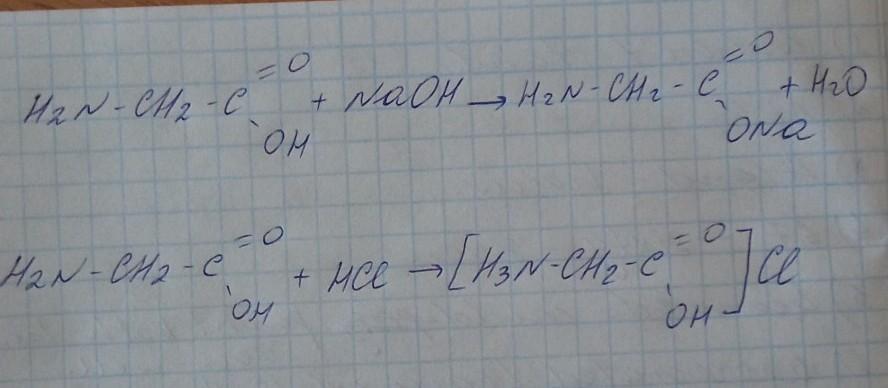 H2N-CH2-C=O OH + NaOH → H2N-CH2-C=O ONa + H2O
H2N-CH2-C=O OH + HCl → [H3N-CH2-C=O OH]Cl